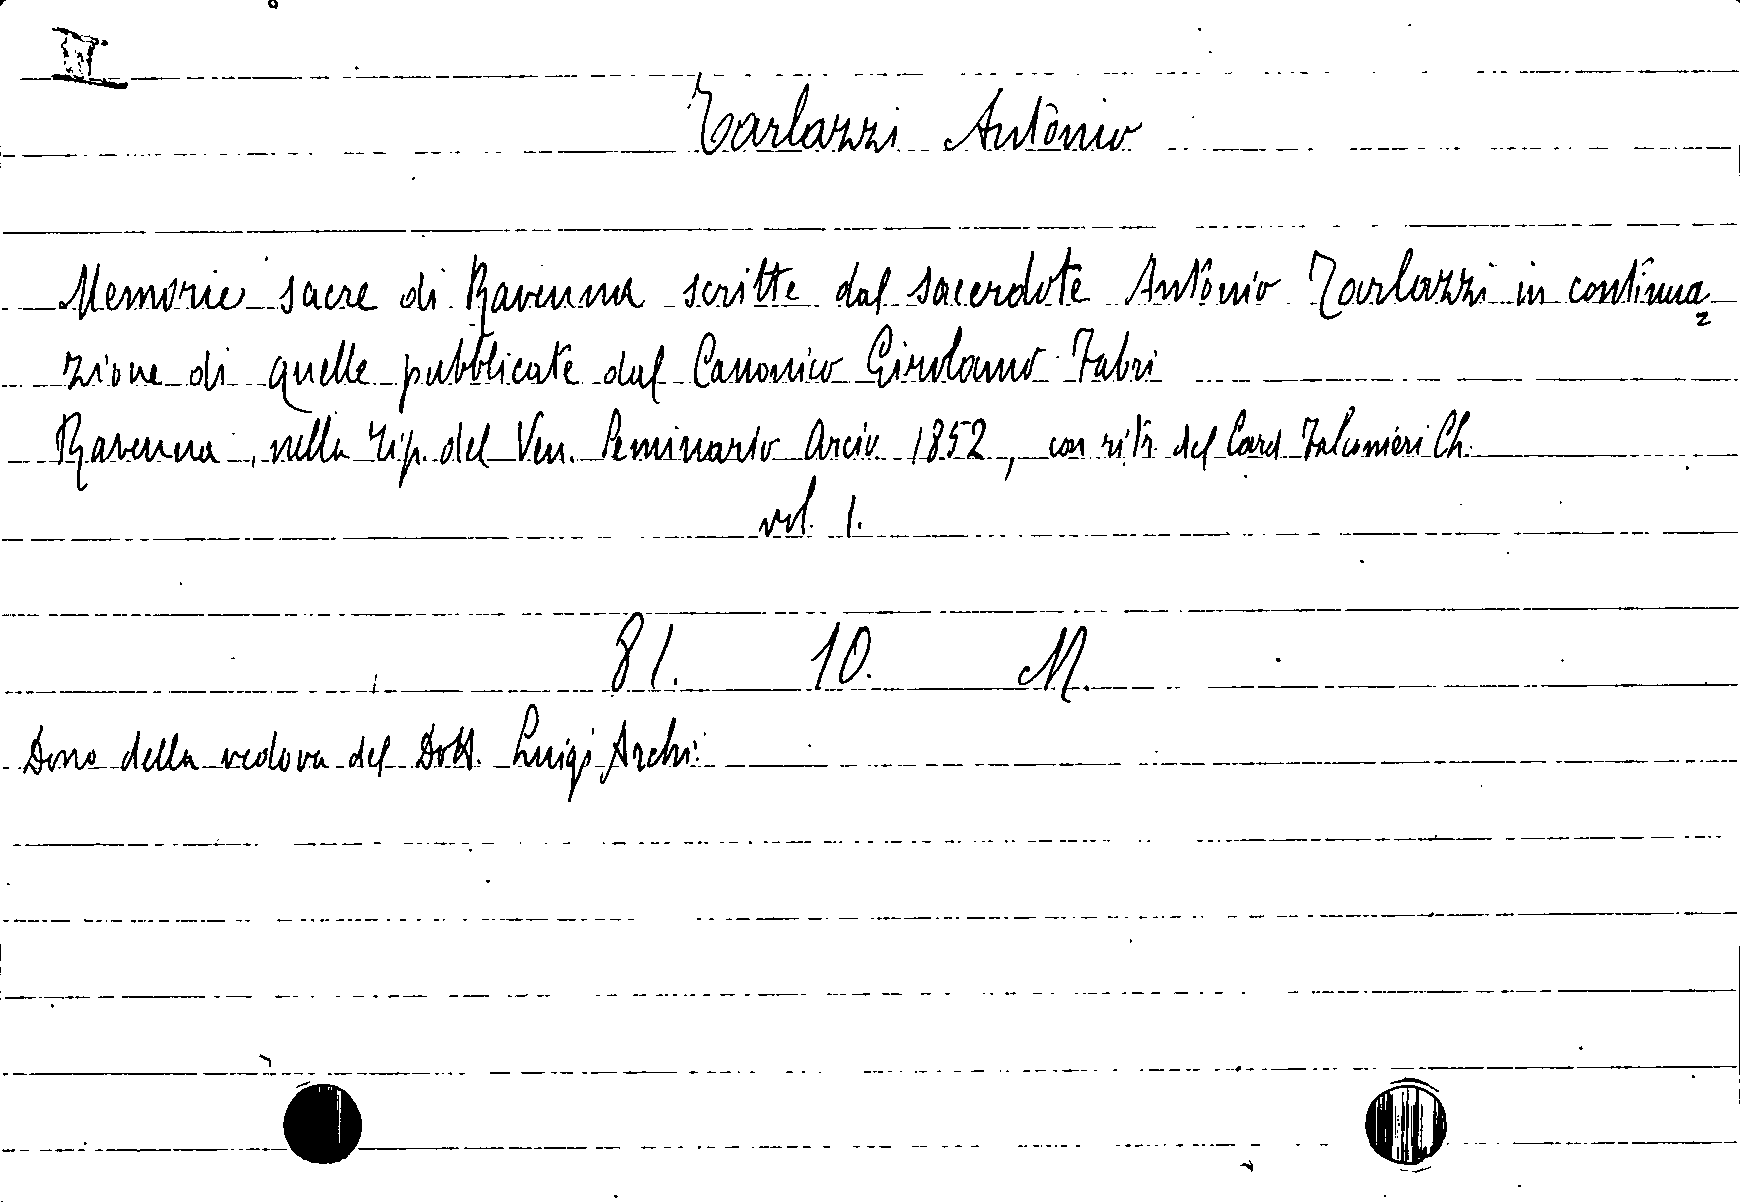 II
Tarlazzi Antonio
Memorie sacre di Ravenna scritte dal sacerdote Antonio Tarlazzi in continua=
zione di quelle pubblicate dal Canonico Girolamo Fabri
Ravenna, nella Tip. del Ven. Seminario Arciv. 1852, con ritr. del Card Falconieri Ch.
vol. 1.
81. 10. M.
Dono della vedova del Dott. Luigi Archi